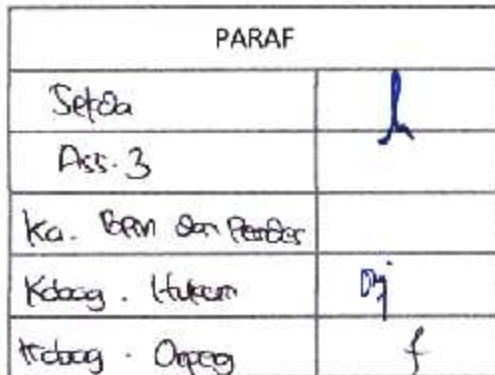 PARAF
Setda
Ass. 3
Ka. BPM dan
Kabag. Hukum
Kabag. Orpeg